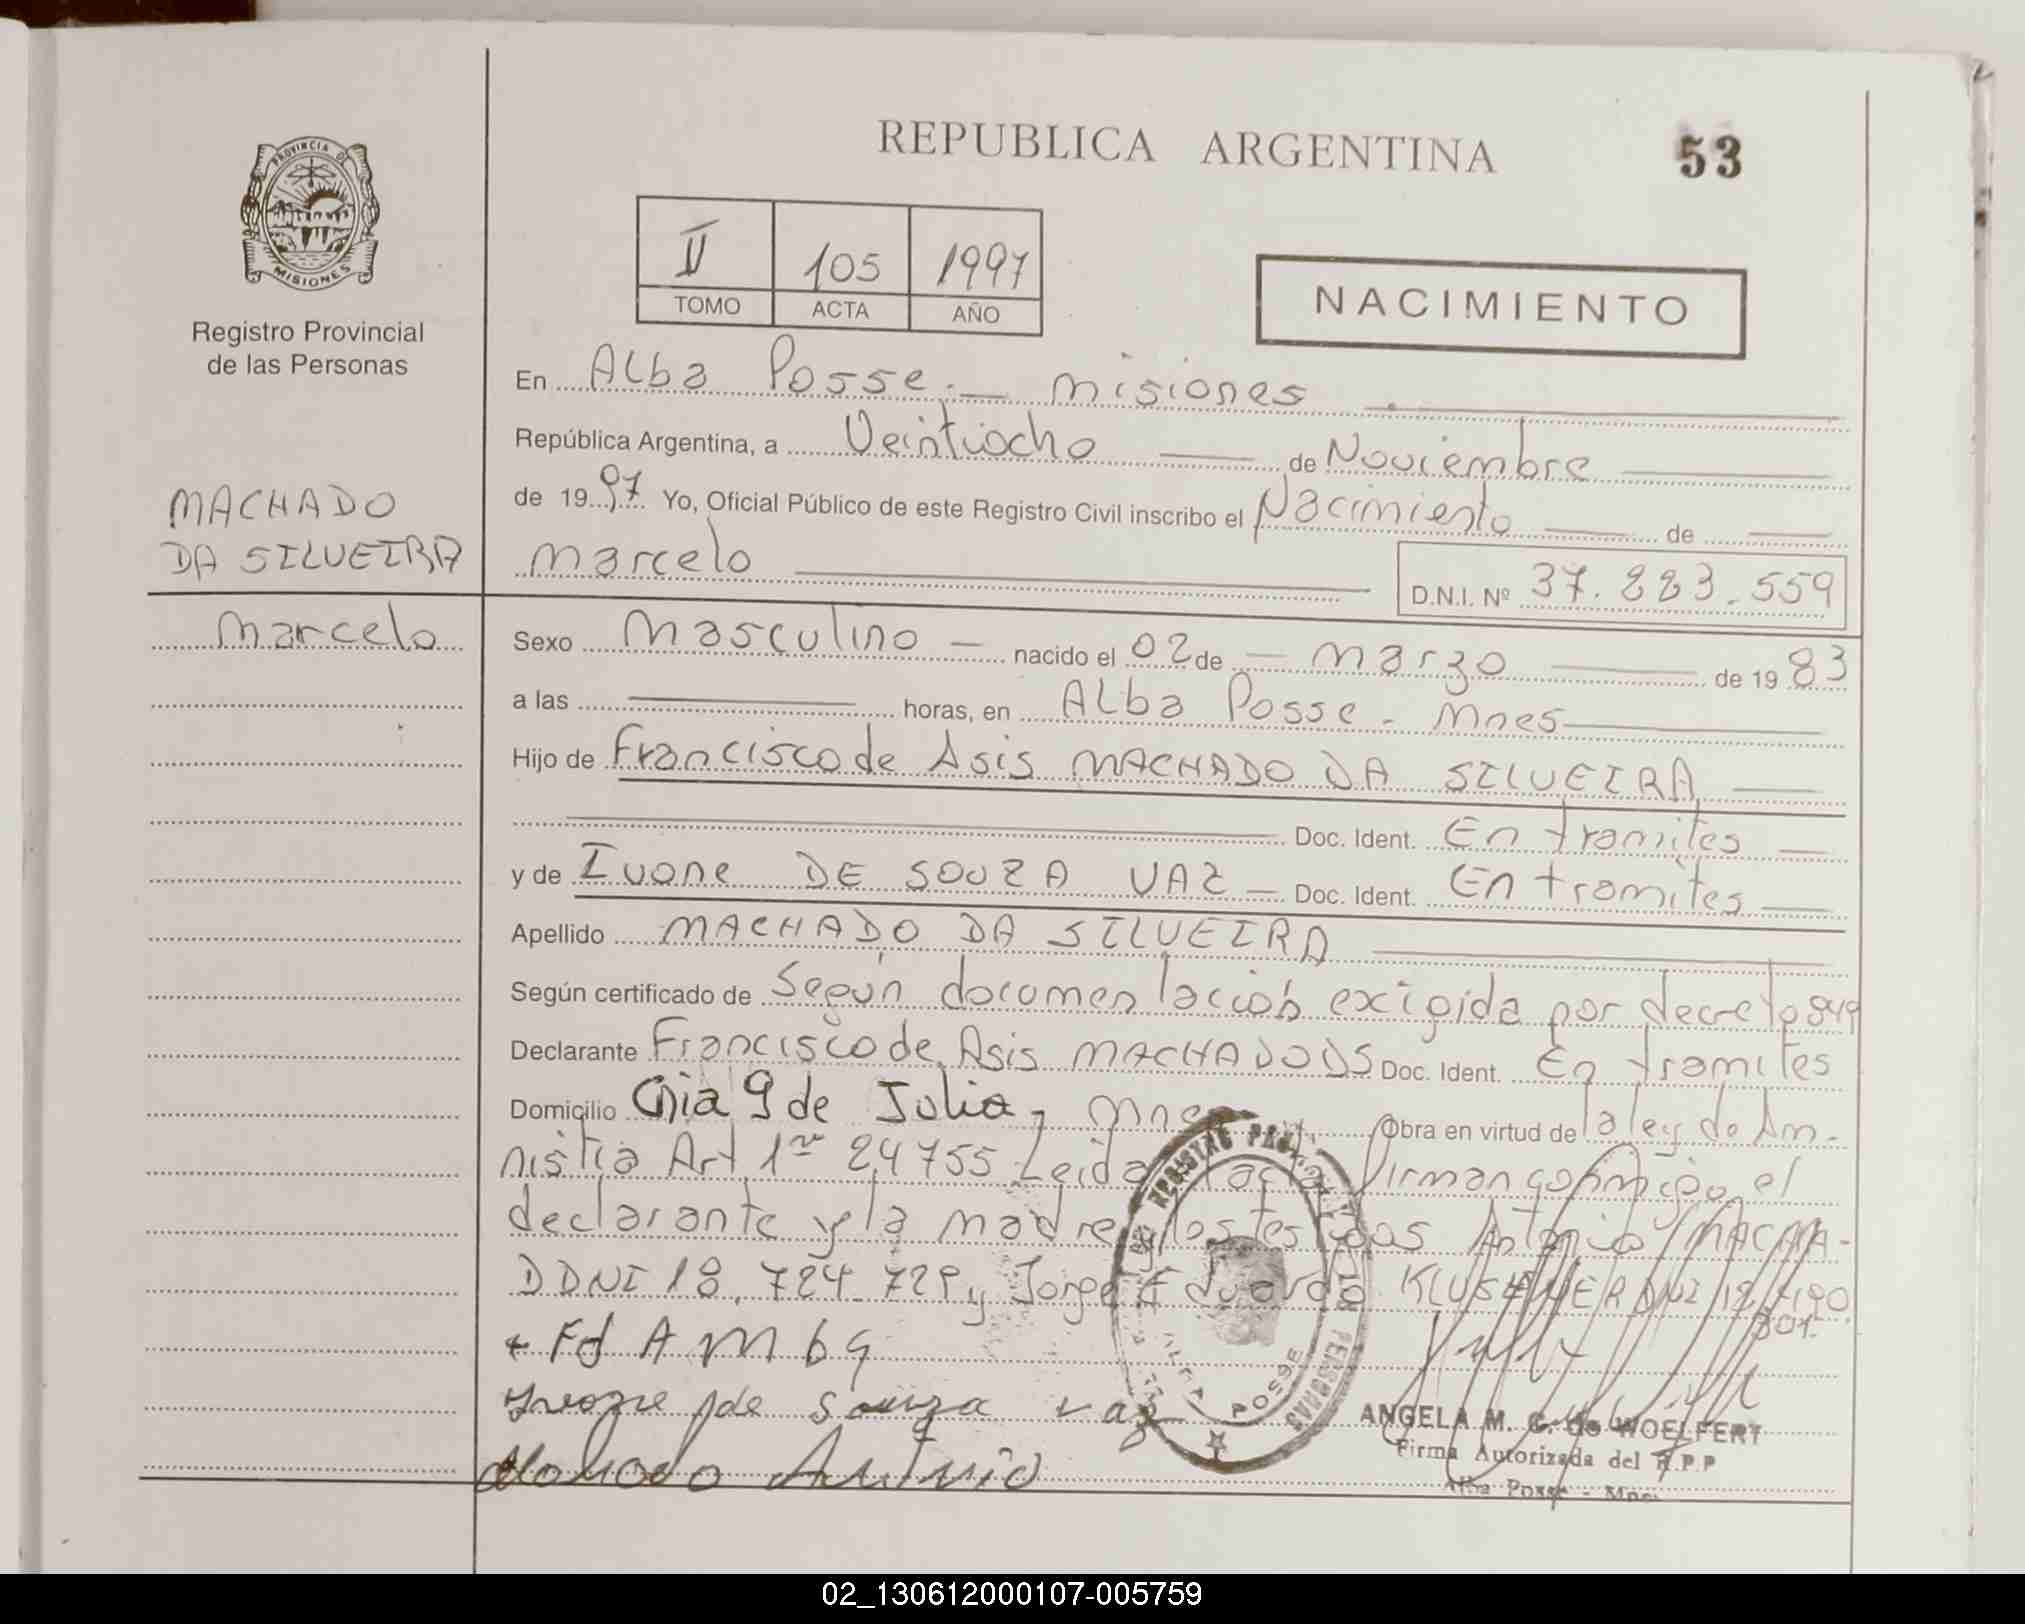 REPUBLICA ARGENTINA
53
PROVINCIA DE
MISIONES
Registro Provincial
de las Personas
II 105 1997
TOMO ACTA AÑO
NACIMIENTO
En Alba Posse. — Misiones
República Argentina, a Veintiocho — de Noviembre
de 1997 Yo, Oficial Público de este Registro Civil inscribo el Nacimiento — de —
MACHADO
DA SILVEIRA
Marcelo
Marcelo
D.N.I. Nº 37.883.559
Sexo Masculino — nacido el 02 de — Marzo — de 1983
a las — horas, en Alba Posse - Mnes
Hijo de Francisco de Asis MACHADO DA SILVEIRA
Doc. Ident. En tramites
y de Ivone DE SOUZA VAZ — Doc. Ident. En tramites
Apellido MACHADO DA SILVEIRA
Según certificado de Según documentación exigida por decreto 849
Declarante Francisco de Asis MACHADO DS Doc. Ident. En tramites
Domicilio Cnia 9 de Julio, Mnes Obra en virtud de la ley de Am-
nistia Art 1º 24755 Leida acta firman conmigo el
declarante y la madre y los testigos Antonio MACHA-
DO DNI 18.724.729 y Jorge Eduardo KLUSENER DNI
+ Fd A M b g
Ivone de Souza Vaz
Machado Antonio
POSSE
ANGELA M. G. de WOELFERT
Firma Autorizada del R.P.P
Alba Posse - Mnes
02_130612000107-005759